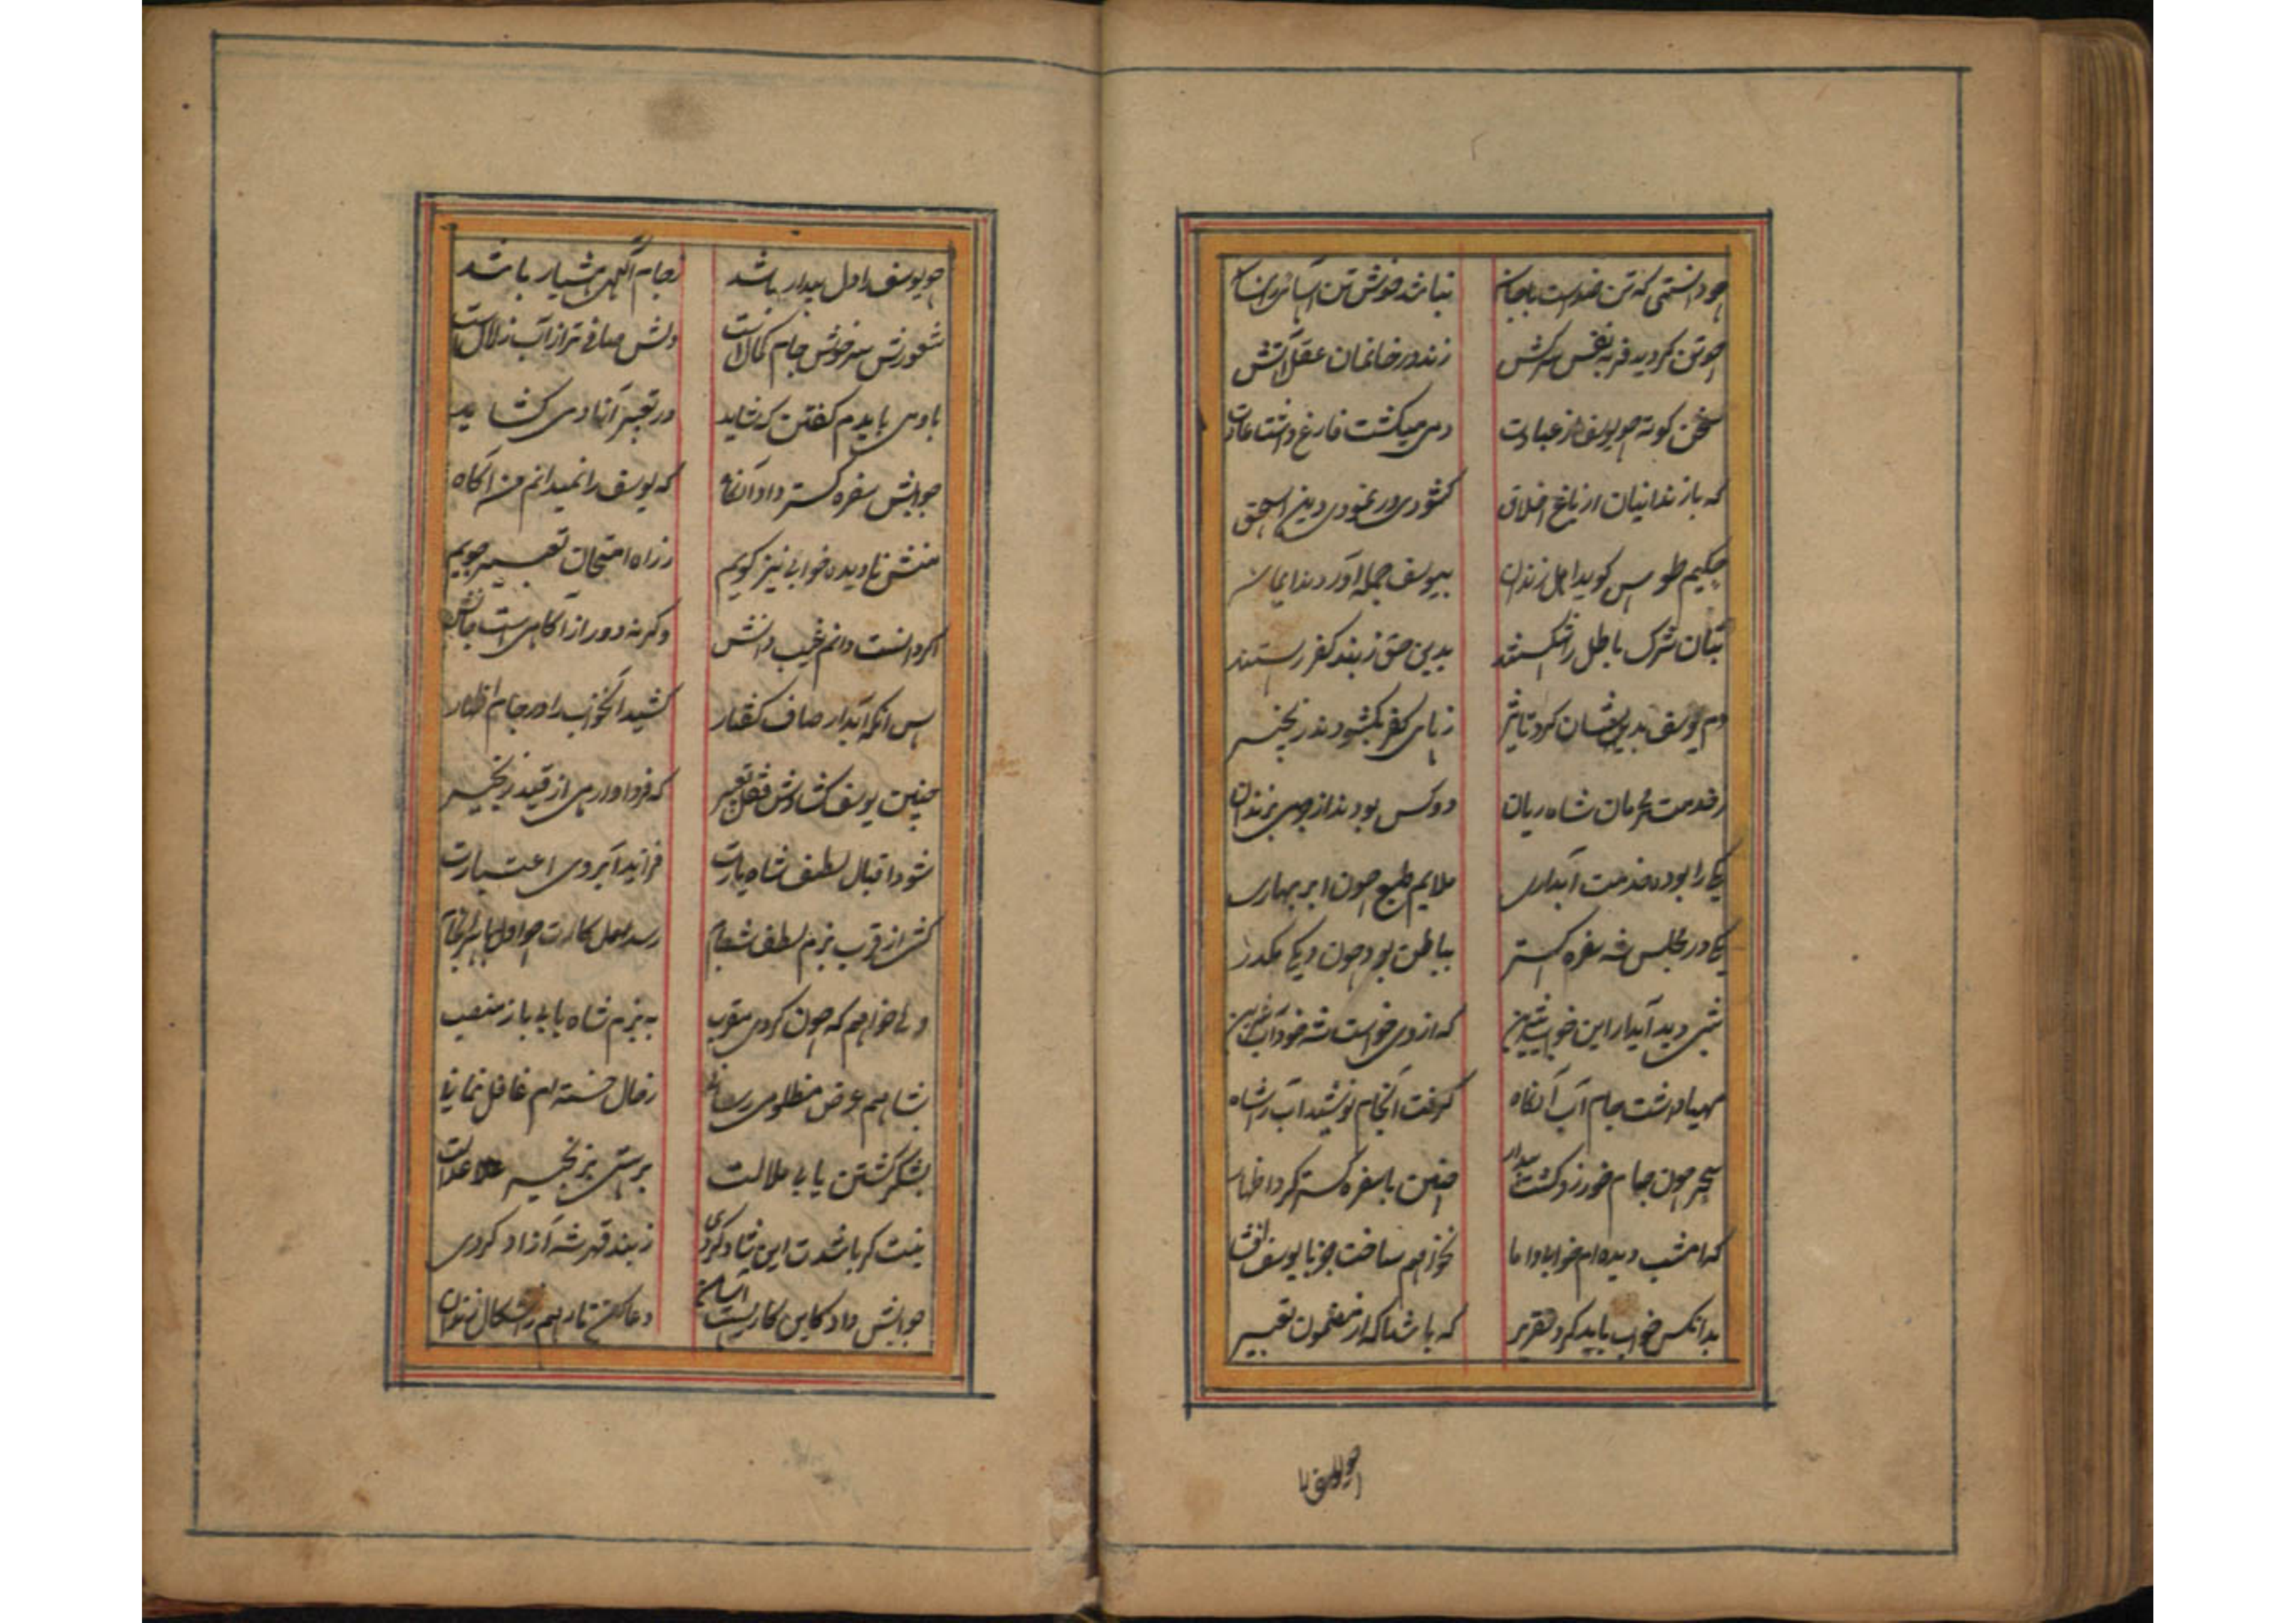 چو دانستی که تن خصمست باجان نباشد خوش تن آسانی انسان
چو تن گردید فربه نفس سرکش زند در خانمان عقل آتش
سخن کوته چو یوسف از عبادت دمی میگشت فارغ داشت عادت
که با زندانیان از باغ اخلاق گشودی در نمودی دین اسحق
حکیم طوس گوید اهل زندان بیوسف جمله آوردند ایمان
بتان شرک باطل را شکستند بدین حق ز بند کفر رستند
دم یوسف بدیشان کرد تاثیر ز پای کفر بگشودند زنجیر
ز خدمت محرمان شاه ریان دو کس بودند از جرمی بزندان
یکی را بوده خدمت آبداری ملایم طبع چون ابر بهاری
یکی در مجلس شه سفره گستر بباطن بود چون دیگی مکدر
شبی دید آبدار این خواب شیرین که از وی خواست شه خود آب
مهیا داشت جام آب آنگاه گرفت آنجام نوشید آب را شاه
سحر چون جام خور زد گشت بیدار چنین با سفره گستر کرد اظهار
که امشب دیده‌ام خوابا و اما نخواهم ساخت جز با یوسف افشا
بدانکس خواب باید کرد تقریر که باشد آگه از مضمون تعبیر
چو یوسف را
چو یوسف را دل بیدار باشد ز جام آگهی هشیار باشد
شعورش سرخوش جام کمالات دلش صافی تر از آب زلالست
باوی بایدم گفتن که شاید در تعبیر آنا وی گشاید
جوابش سفره گستر داد آنگاه که یوسف را نمیدانم من آگاه
منش نادیده خوابی نیز گویم ز راه امتحان تعبیر جویم
اگر دانست دانم غیب دانش وگرنه دور از آگاهی است جانش
پس آنگه آبدار صاف گفتار کشید آنخواب را در جام اظهار
چنین یوسف گشادش قفل تعبیر که فردا وارهی از قید زنجیر
شود اقبال لطف شاه یارت فزاید آبروی اعتبارت
کشی از قرب بزم لطف شه جام رسد اول
ولی خواهم که چون گردی مقرب به بزم شاه یابی باز منصب
بشاهم عرض مظلومی رسانی ز حال خسته‌ام غافل نمانی
بشکر گشتن یابی ملالت برستی بزنجیر عدالت
ز بند قهر شه آزاد کردی
جوابش داد کاین کاریست آسان دعا کن تا رهم زاشکال زندان